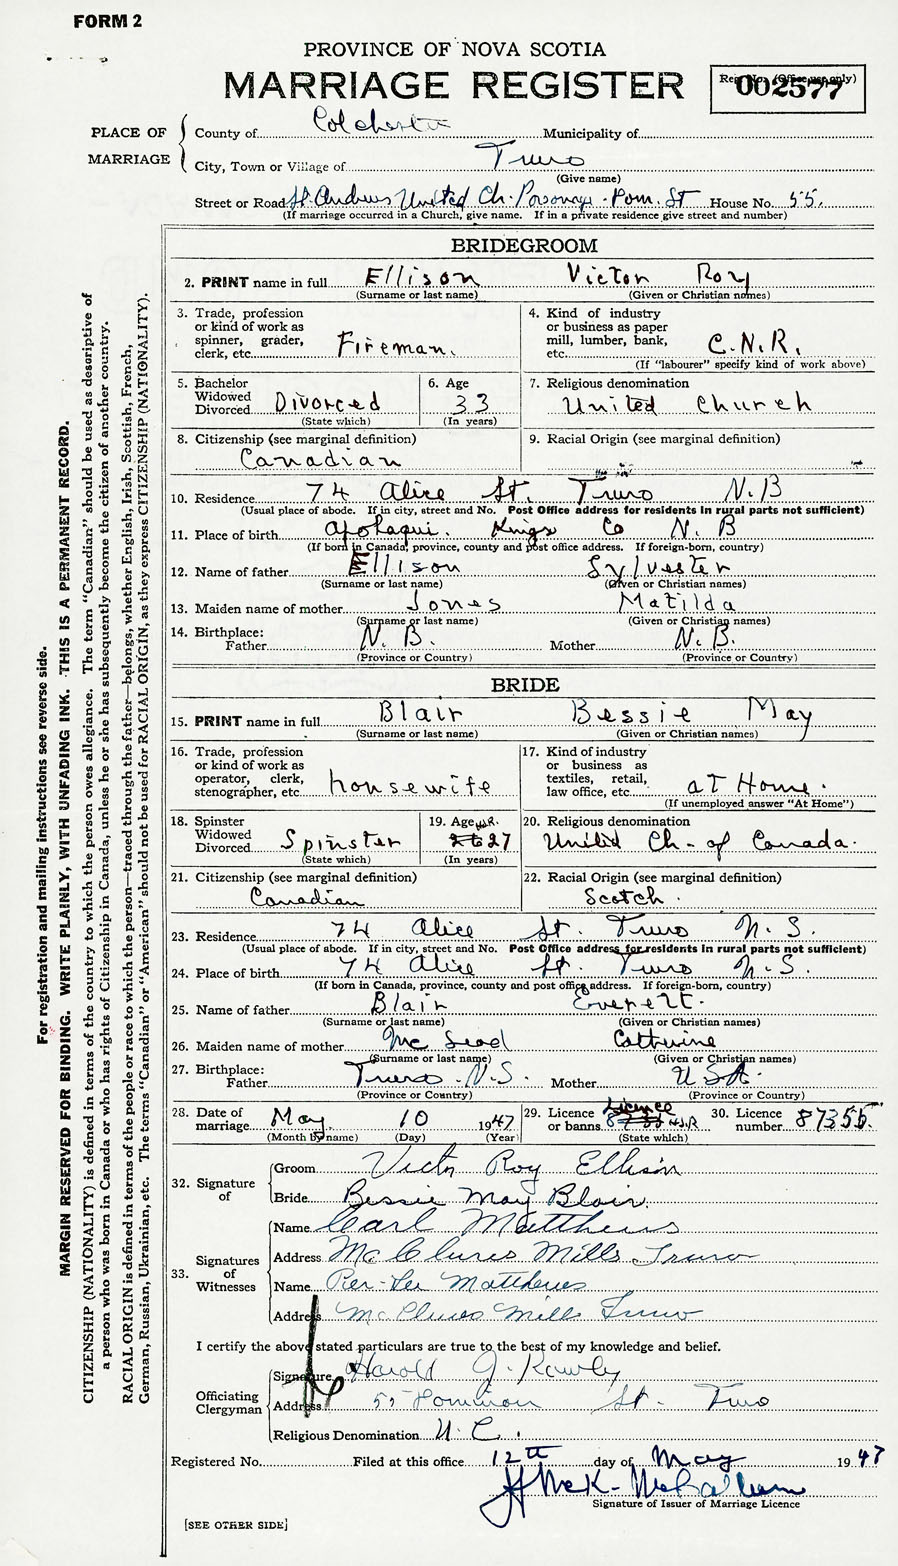 FORM 2
PROVINCE OF NOVA SCOTIA
MARRIAGE REGISTER
Reg. No. (Office use only)
002577
PLACE OF MARRIAGE
County of Colchester Municipality of
City, Town or Village of Truro
(Give name)
Street or Road St. Andrews United Ch. Dom. St House No. 55.
(If marriage occurred in a Church, give name. If in a private residence give street and number)
BRIDEGROOM
2. PRINT name in full Ellison Victor Roy
(Surname or last name) (Given or Christian names)
3. Trade, profession or kind of work as spinner, grader, clerk, etc. Fireman.
4. Kind of industry or business as paper mill, lumber, bank, etc. C.N.R.
(If "labourer" specify kind of work above)
5. Bachelor Widowed Divorced Divorced
(State which)
6. Age 33
(In years)
7. Religious denomination
United Church
8. Citizenship (see marginal definition)
Canadian
9. Racial Origin (see marginal definition)
10. Residence 74 Alice St. Truro N.B
(Usual place of abode. If in city, street and No. Post Office address for residents in rural parts not sufficient)
11. Place of birth Apohaqui. Kings Co N. B
(If born in Canada, province, county and post office address. If foreign-born, country)
12. Name of father Ellison Sylvester
(Surname or last name) (Given or Christian names)
13. Maiden name of mother Jones Matilda
(Surname or last name) (Given or Christian names)
14. Birthplace:
Father N. B. Mother N. B.
(Province or Country) (Province or Country)
BRIDE
15. PRINT name in full Blair Bessie May
(Surname or last name) (Given or Christian names)
16. Trade, profession or kind of work as operator, clerk, stenographer, etc. housewife
17. Kind of industry or business as textiles, retail, law office, etc. at Home.
(If unemployed answer "At Home")
18. Spinster Widowed Divorced Spinster
(State which)
19. Age 27
(In years)
20. Religious denomination
United Ch- of Canada.
21. Citizenship (see marginal definition)
Canadian
22. Racial Origin (see marginal definition)
Scotch.
23. Residence 74 Alice St. Truro N.S.
(Usual place of abode. If in city, street and No. Post Office address for residents in rural parts not sufficient)
24. Place of birth 74 Alice St. Truro N.S.
(If born in Canada, province, county and post office address. If foreign-born, country)
25. Name of father Blair Everett.
(Surname or last name) (Given or Christian names)
26. Maiden name of mother Mc Leod Catherine
(Surname or last name) (Given or Christian names)
27. Birthplace:
Father Truro. N.S. Mother U S A.
(Province or Country) (Province or Country)
28. Date of marriage May 10 1947
(Month by name) (Day) (Year)
29. Licence or banns Licence
(State which)
30. Licence number 87355.
32. Signature of
Groom Victor Roy Ellison
Bride Bessie May Blair.
33. Signatures of Witnesses
Name Carl Matthews
Address McClures Mills Truro
Name Matthews
Address McClures Mills Truro
I certify the above stated particulars are true to the best of my knowledge and belief.
Officiating Clergyman
Signature Harold J.
Address 55 Dominion St. Truro
Religious Denomination U. C.
Registered No. Filed at this office 12th day of May 1947
Signature of Issuer of Marriage Licence
[SEE OTHER SIDE]
For registration and mailing instructions see reverse side.
MARGIN RESERVED FOR BINDING. WRITE PLAINLY, WITH UNFADING INK. THIS IS A PERMANENT RECORD.
CITIZENSHIP (NATIONALITY) is defined in terms of the country to which the person owes allegiance. The term "Canadian" should be used as descriptive of
a person who was born in Canada or who has rights of Citizenship in Canada, unless he or she has subsequently become the citizen of another country.
RACIAL ORIGIN is defined in terms of the people or race to which the person—traced through the father—belongs, whether English, Irish, Scottish, French,
German, Russian, Ukrainian, etc. The terms "Canadian" or "American" should not be used for RACIAL ORIGIN, as they express CITIZENSHIP (NATIONALITY).